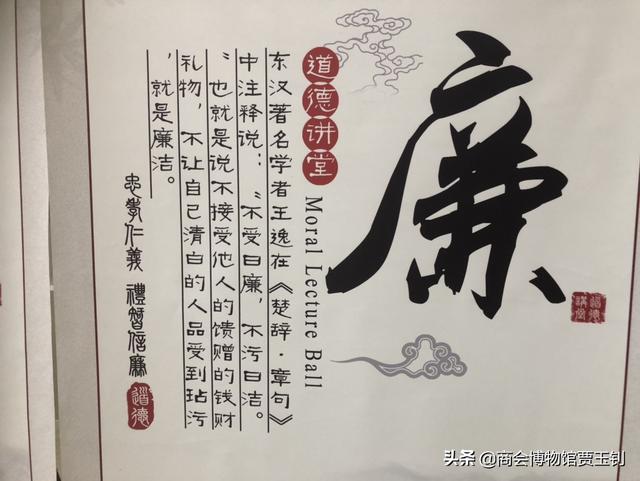 廉
道德講堂
道德讲堂
Moral Lecture Ball
东汉著名学者王逸在《楚辞·章句》
中注释说：“不受曰廉，不污曰洁。
”也就是说不接受他人的馈赠的钱财
礼物，不让自己清白的人品受到玷污
，就是廉洁。
忠孝仁義 禮智信廉
道德
头条 @商会博物馆贾玉钊